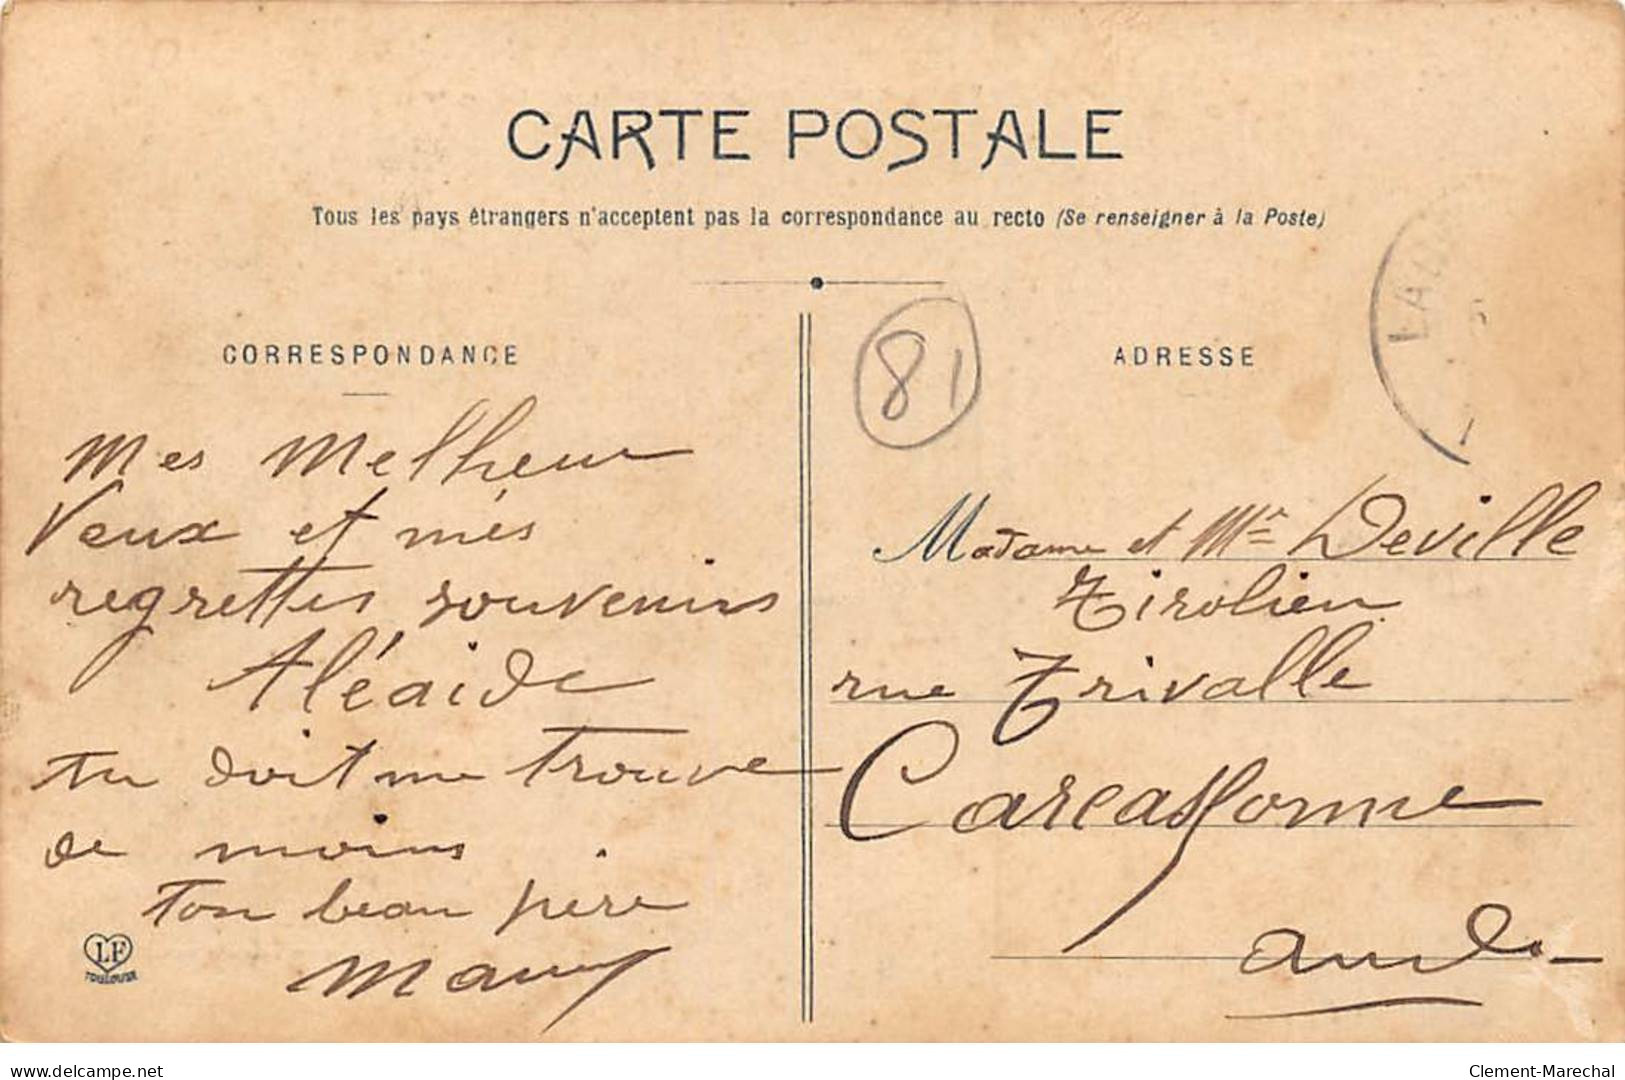 CARTE POSTALE
Tous les pays étrangers n'acceptent pas la correspondance au recto (Se renseigner à la Poste)
CORRESPONDANCE
Mes Melheur
Veux et mes
regrettes souvenirs
Aléaide
tu doit me trouve
de moins
ton beau père
Maury
LF
TOULOUSE
81
ADRESSE
LAU
Madame et Mr Deville
Tirolien
rue Trivalle
Carcassonne
Aude
delcampe.net
Clement-Marechal